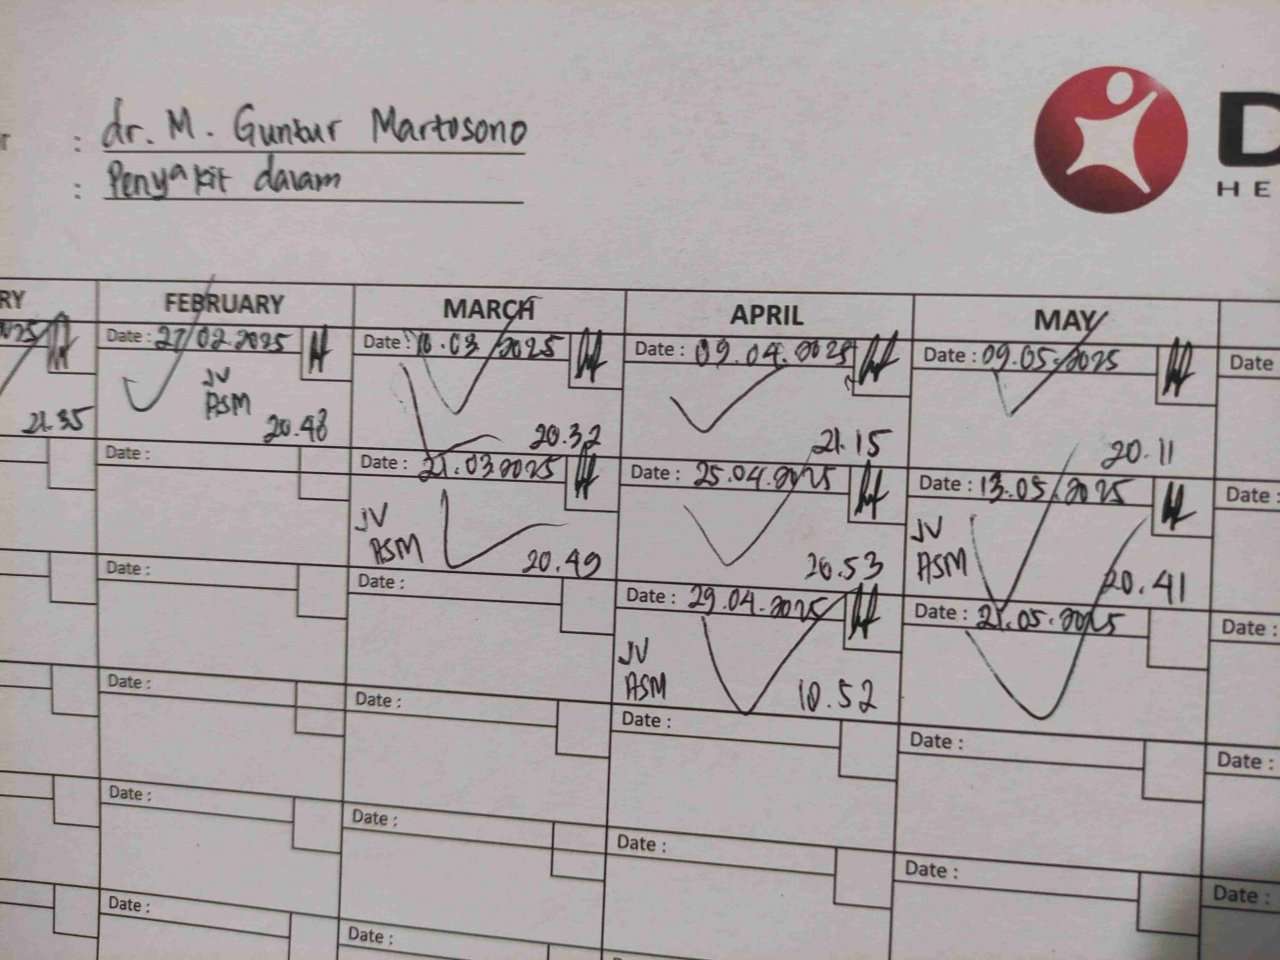 : dr. M. Guntur Martosono
: Penyakit dalam
D
HE
RY FEBRUARY MARCH APRIL MAY
Date : 27/02.2025 Date : 10.03.2025 Date : 09.04.2025 Date : 09.05.2025 Date
JV
ASM
21.35 20.48 20.32 21.15 20.11
Date : Date : 21.03.2025 Date : 25.04.2025 Date : 13.05.2025 Date :
JV JV
ASM 20.49 20.53 ASM 20.41
Date : Date : Date : 29.04.2025 Date : 21.05.2025 Date :
JV
ASM 10.52
Date : Date : Date : Date : Date :
Date : Date : Date : Date : Date :
Date : Date :